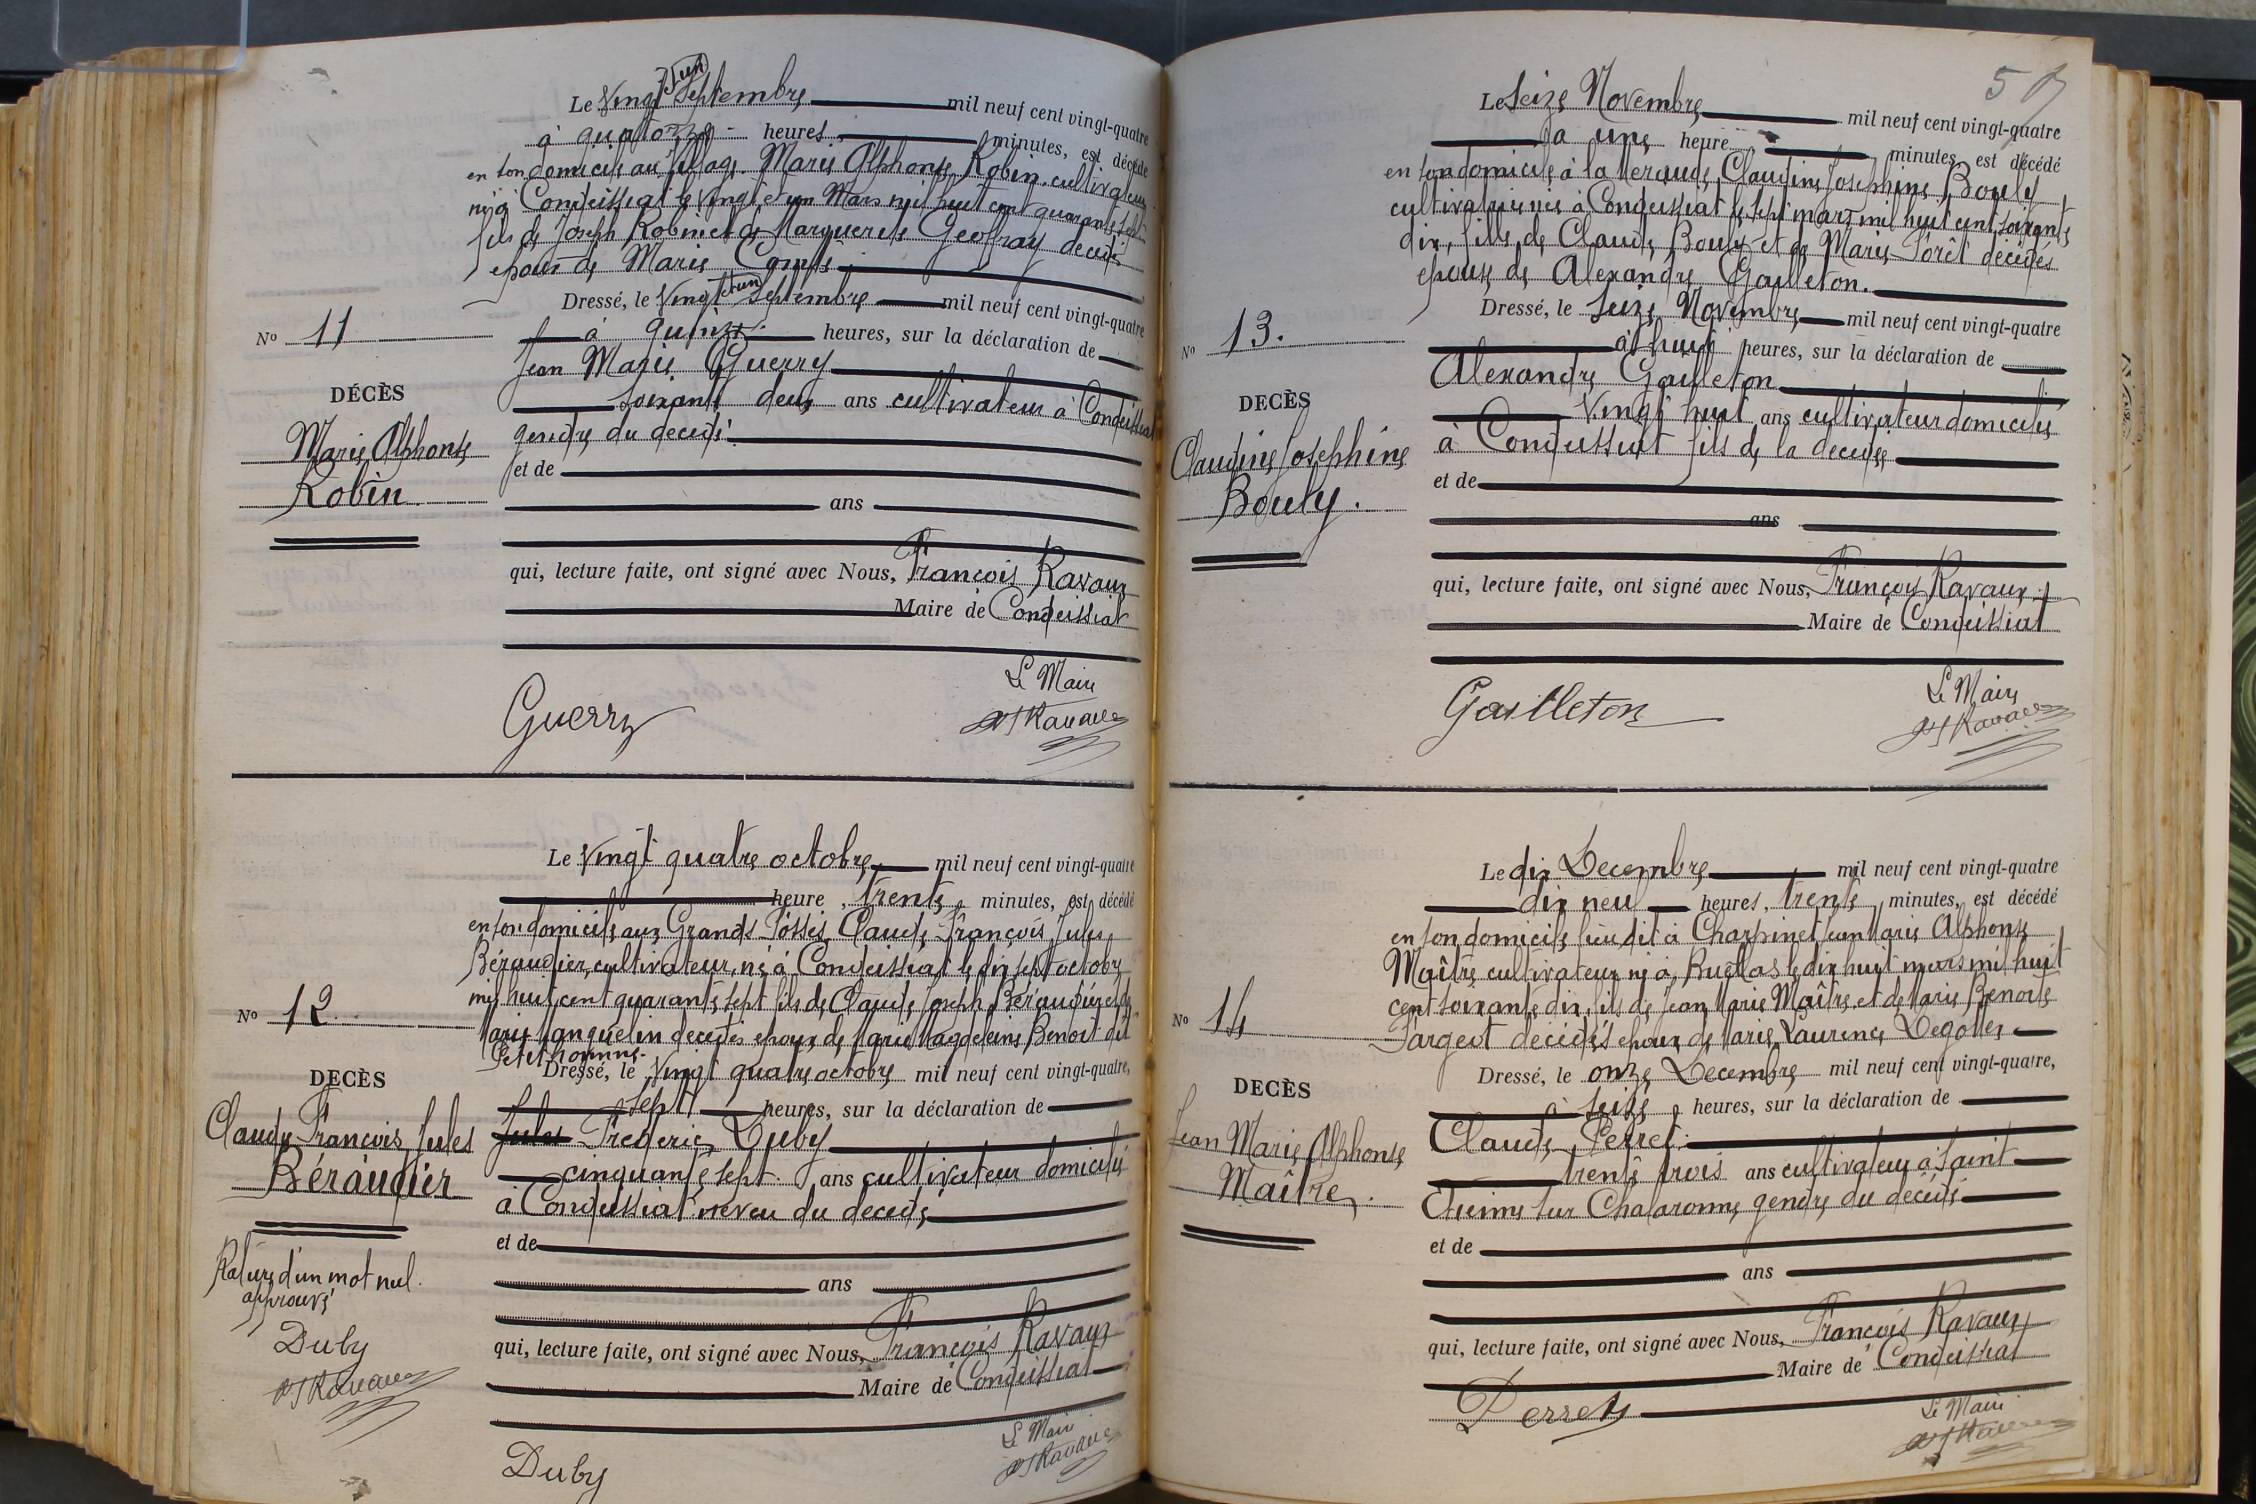 et un
Le Vingt Septembre mil neuf cent vingt-quatre
à quatorze heures, minutes, est décédé
en son domicile au Village Marie Alphonse Robin cultivateur
né à Condeissiat le vingt et un Mars mil huit cent quarante sept
fils de Joseph Robin et de Marguerite Geoffray décédés
époux de Marie Comte
et un
Dressé, le Vingt Septembre mil neuf cent vingt-quatre
à quinze heures, sur la déclaration de
Jean Marie Guerry
soixante deux ans cultivateur à Condeissiat
gendre du décédé
et de
ans
qui, lecture faite, ont signé avec Nous, François Ravaux
Maire de Condeissiat
Le Maire
Guerry
Ravaux
No 11
DÉCÈS
Marie Alphonse
Robin
Le Vingt quatre octobre mil neuf cent vingt-quatre
heure, trente minutes, est décédé
en son domicile aux Grands Fossés Claude François Jules
Béraudier, cultivateur, né à Condeissiat le dix sept octobre
mil huit cent quarante sept fils de Claude Joseph Béraudier et de
Marie Manguelin décédés époux de Marie Magdeleine Benoit dit
Petit homme
Dressé, le Vingt quatre octobre mil neuf cent vingt-quatre,
sept heures, sur la déclaration de
Jules Frederic Duby
cinquante sept ans cultivateur domicilié
à Condeissiat neveu du décédé
et de
ans
qui, lecture faite, ont signé avec Nous, François Ravaux
Maire de Condeissiat
Le Maire
Ravaux
Duby
No 12
DECÈS
Claude François Jules
Béraudier
Rature d'un mot nul
approuvé
Duby
Ravaux
Le Seize Novembre mil neuf cent vingt-quatre
à une heure minutes, est décédé
en son domicile à la Claudine Josephine Bouly
cultivatrice née à Condeissiat le sept mars mil huit cent soixante
dix, fille de Claude Bouly et de Marie Forêt décédés
épouse de Alexandre Gailleton.
Dressé, le Seize Novembre mil neuf cent vingt-quatre
à huit heures, sur la déclaration de
Alexandre Gailleton
Vingt huit ans cultivateur domicilié
à Condeissiat fils de la décédée
et de
ans
qui, lecture faite, ont signé avec Nous, François Ravaux
Maire de Condeissiat
Le Maire
Gailleton
Ravaux
No 13.
DECÈS
Claudine Josephine
Bouly.
Le dix Decembre mil neuf cent vingt-quatre
dix neuf heures, trente minutes, est décédé
en son domicile lieu dit à Charpinet Jean Marie Alphonse
Maître cultivateur né à Buellas le dix huit mars mil huit
cent soixante dix, fils de Jean Marie Maître et de Marie Benoite
Fargeot décédés époux de Marie Laurence Degotter
Dressé, le onze Decembre mil neuf cent vingt-quatre,
à seize heures, sur la déclaration de
Claude Perret
trente trois ans cultivateur à Saint
Etienne sur Chalaronne gendre du décédé
et de
ans
qui, lecture faite, ont signé avec Nous, François Ravaux
Maire de Condeissiat
Le Maire
Perret
Ravaux
No 14
DECÈS
Jean Marie Alphonse
Maître.